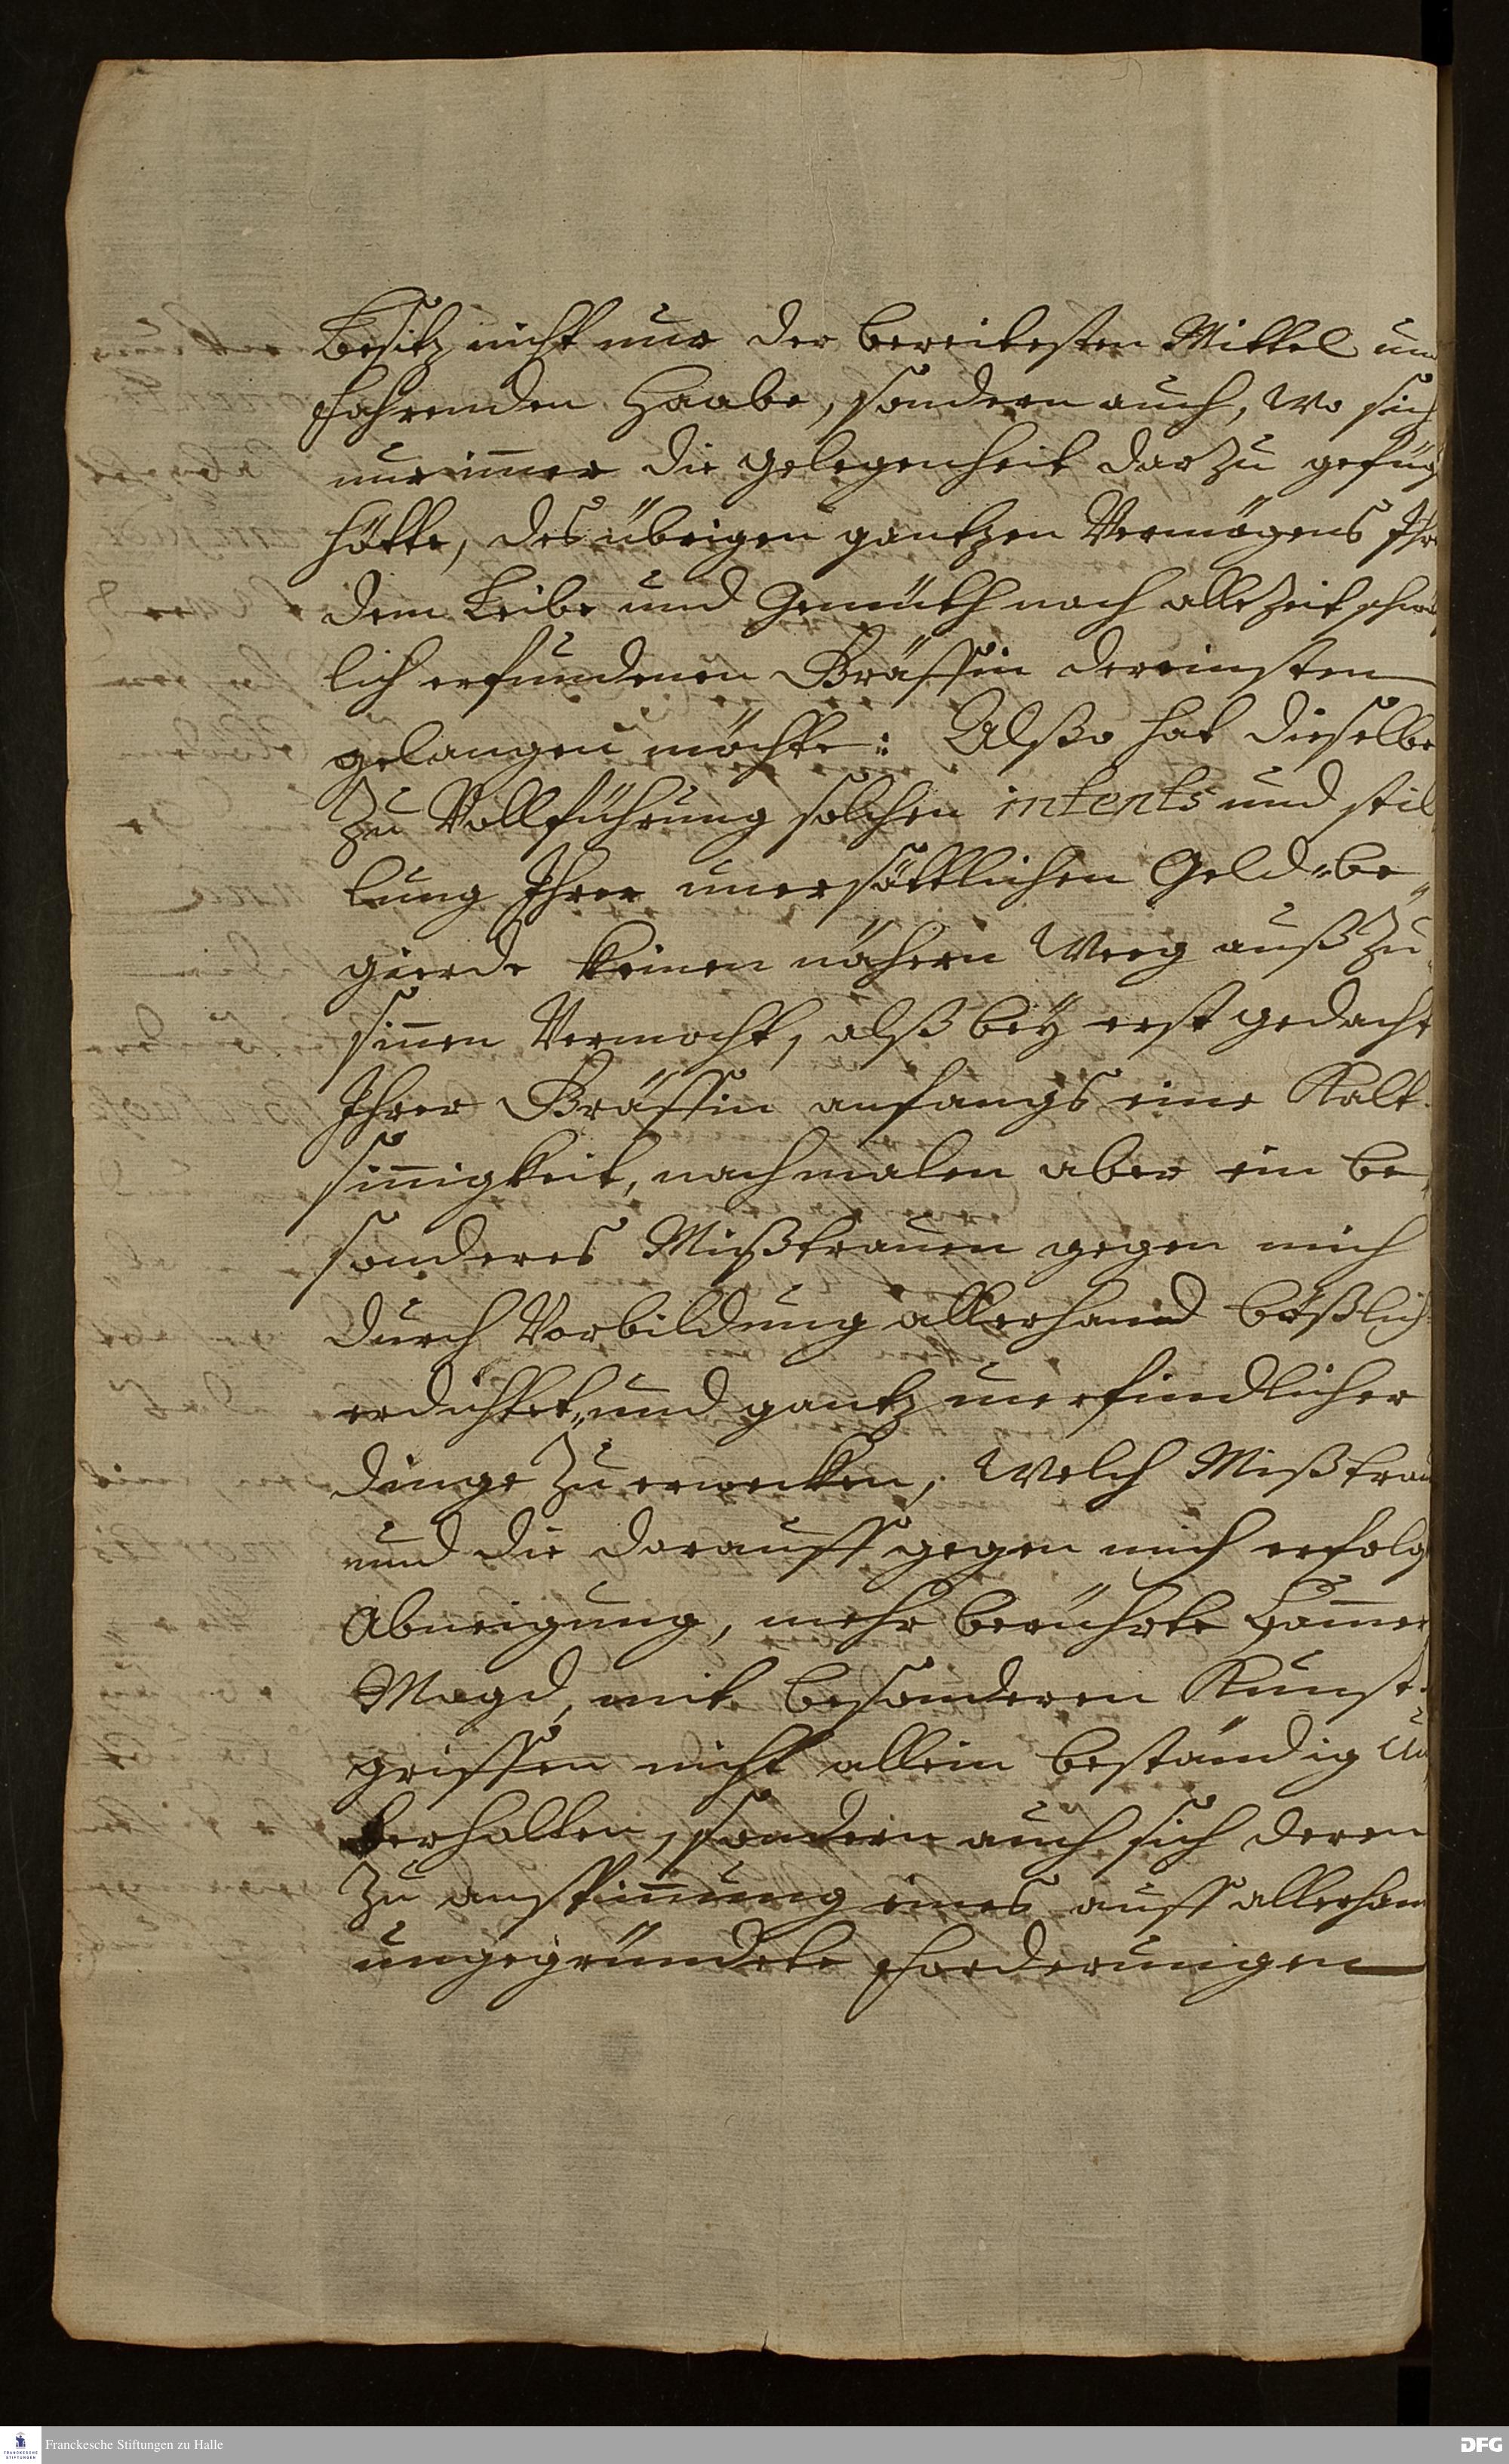 Besitz nicht nur der bereitesten Mittel und
fahrenden Haabe, sondern auch, wo sich
nur im̄er die gelegenheit darzu gefüg
hätte, des übrigen gantzen Vermögens Ihr
dem Leibe und Gemüth nach allezeit schwä
lich erfundenen Gräffin dereinsten
gelangen möchte: Alßo hat dieselbe
zu Vollführung solchen intents und stil
lung Ihrer unersättlichen Geld-be
gierde keinen nähern Weeg auß zu
sin̄en Vermocht, alß bey erst gedacht
Ihrer Gräffin anfangs eine Kalt
sin̄igkeit, nachmalen aber ein be
sonderes Mißtrauen gegen mich
durch Vorbildung allerhand bößlich
erdichtet, und gantz unerfindlicher
dinge zu erwecken, Welch Mißtrau
und die darauff gegen mich erfolg
Abneigung, mehr berührte Cam̄er
Magd, mit besonderen Kunst-
griffen nicht allein beständig Un
terhalten, sondern auch sich deren
zu anspin̄ung eines auff allerhan
ungegründete forderungen
Franckesche Stiftungen zu Halle
DFG